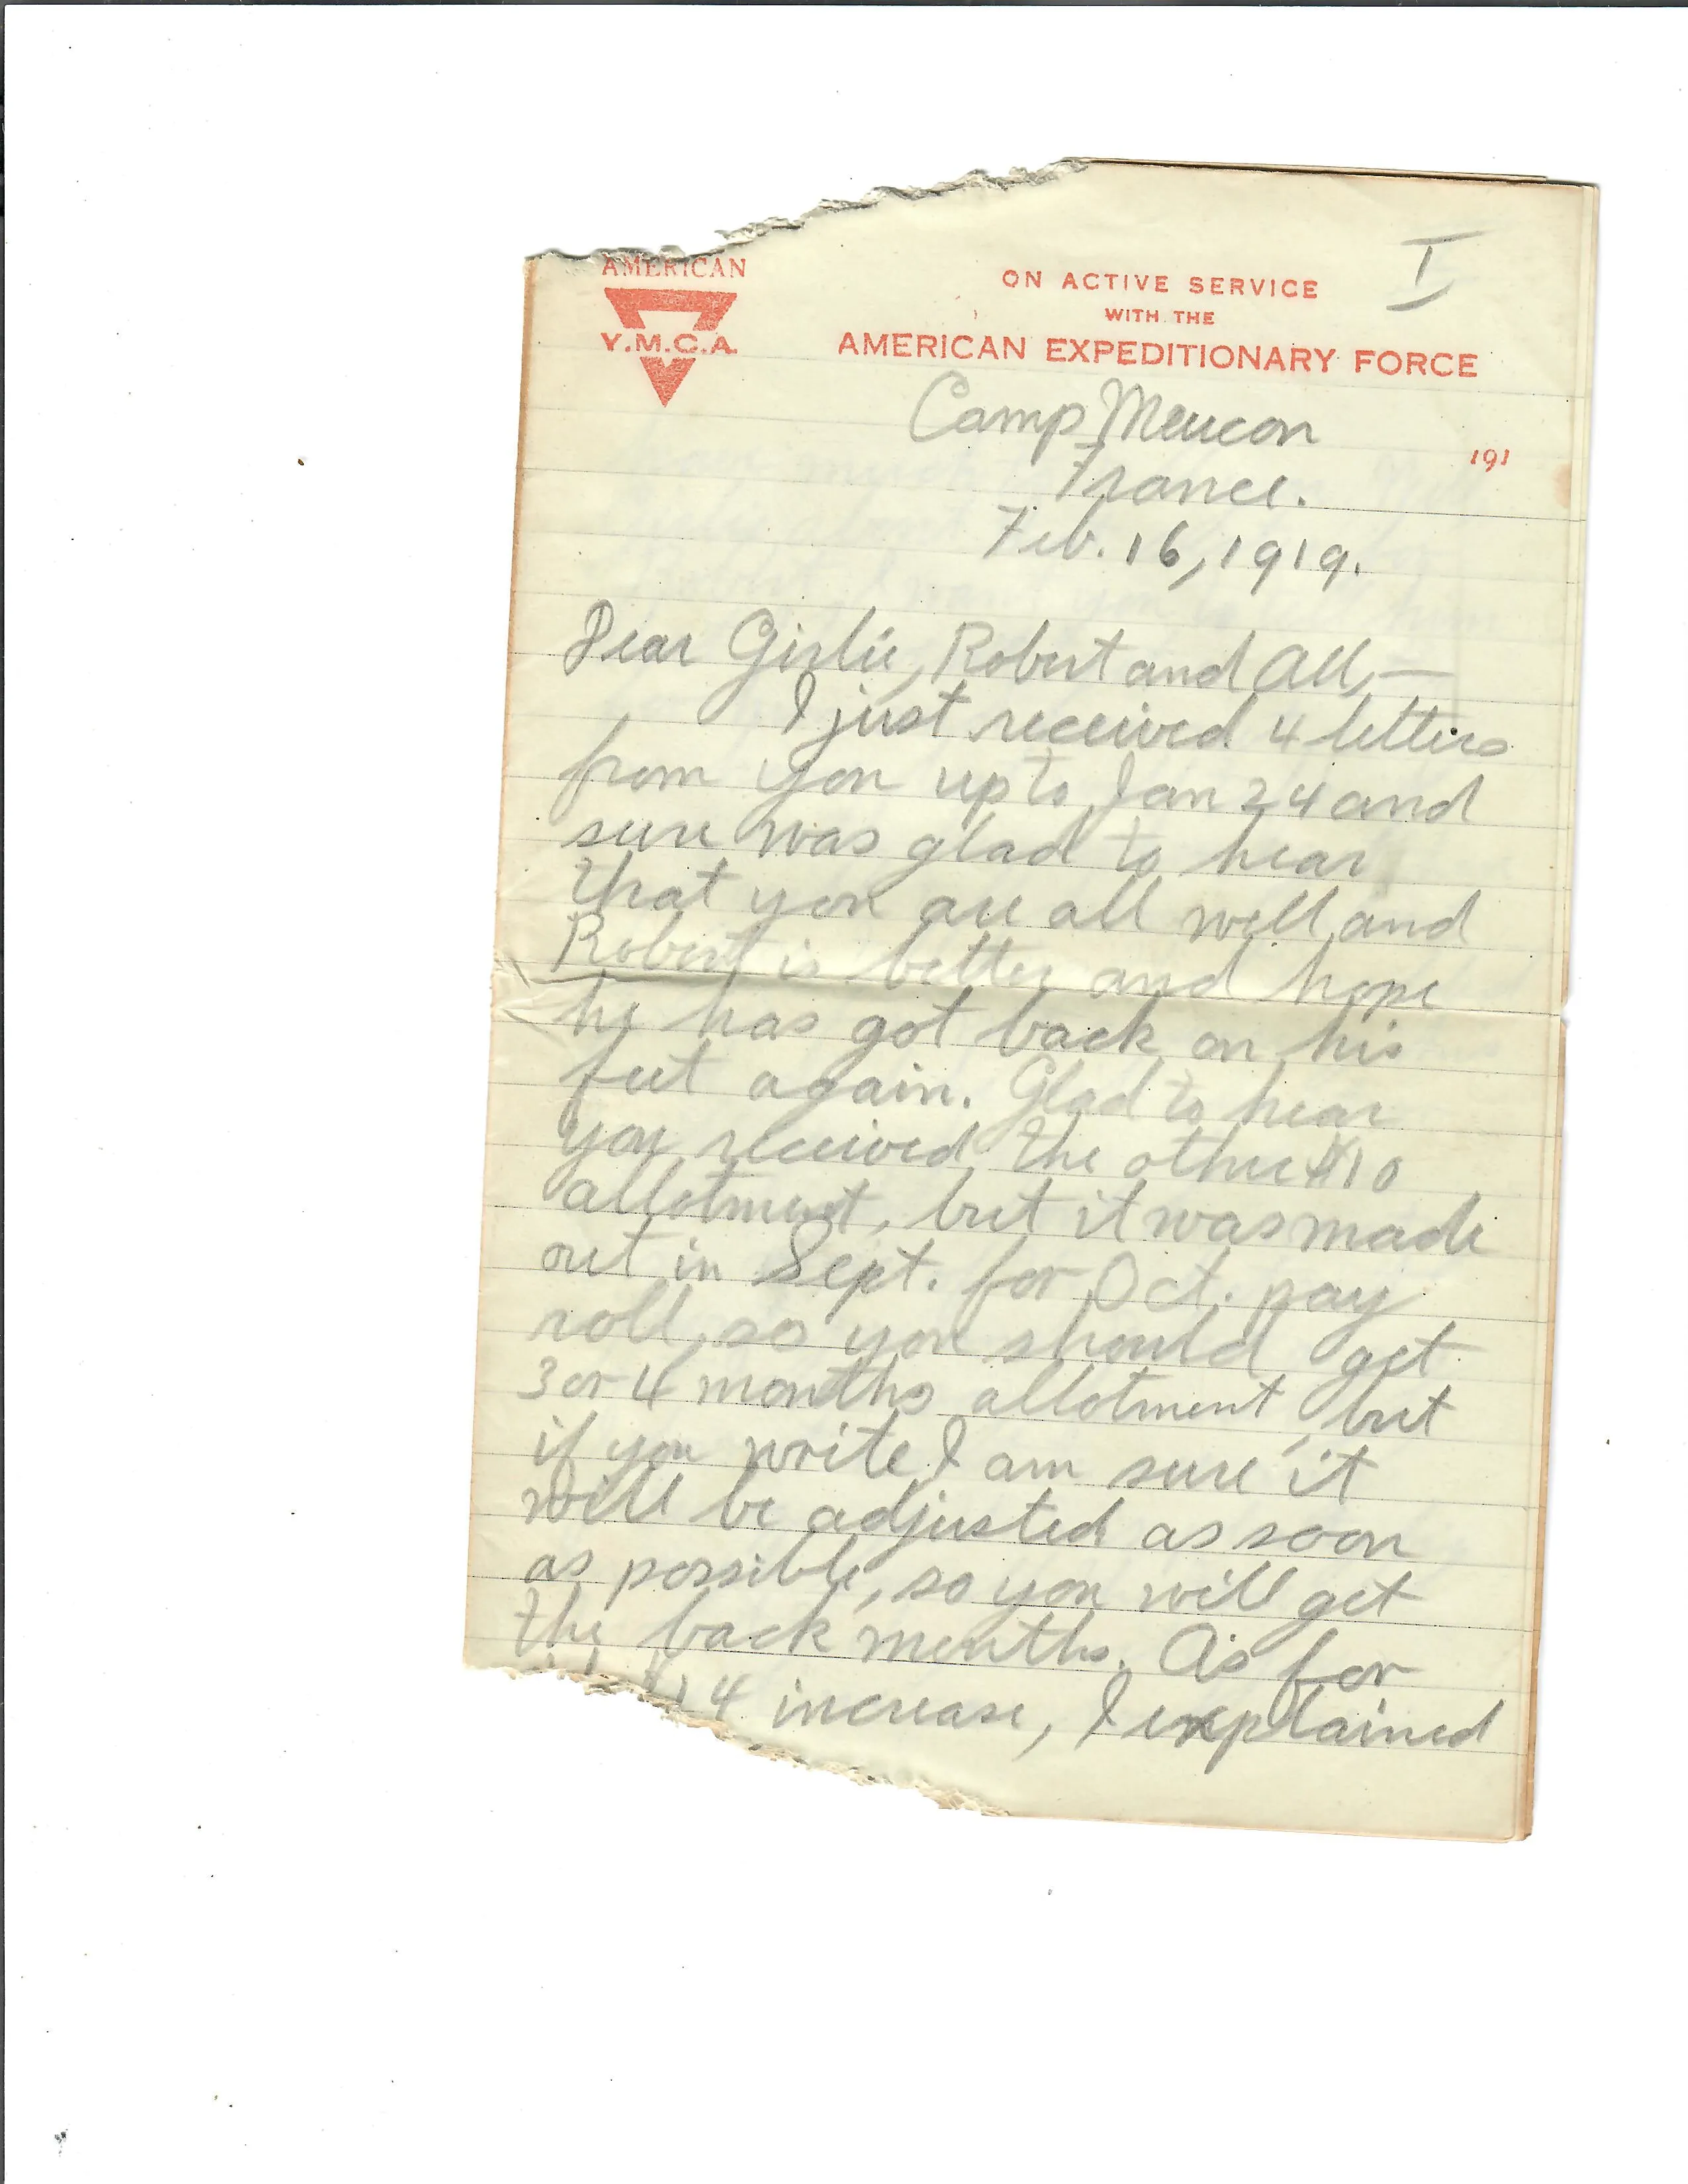 I
AMERICAN
Y.M.C.A.
ON ACTIVE SERVICE
WITH THE
AMERICAN EXPEDITIONARY FORCE
Camp Meucon
191
France.
Feb. 16, 1919.
Dear Girlie, Robert and All,—
I just received 4 letters
from you up to Jan 24 and
sure was glad to hear
that you are all well and
Robert is better and hope
he has got back on his
feet again. Glad to hear
you received the other $10
allotment, but it was made
out in Sept. for Oct. pay
roll, so you should get
3 or 4 months allotment, but
if you write I am sure it
will be adjusted as soon
as possible, so you will get
the back months. As for
$14 increase, I explained